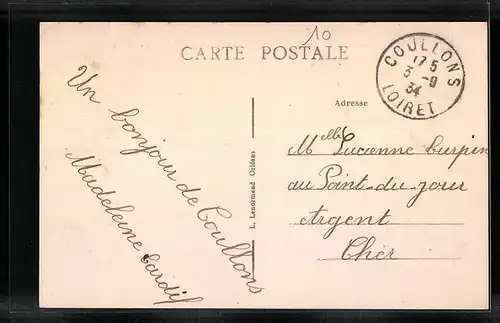 10
CARTE POSTALE
COULLONS
17 5
3 - 9
34
LOIRET
Adresse
Un bonjour de Coullons
Madeleine Cardif
L. Lenormand Orléans
Melle Lucienne Turpin
au Point-du-jour
Argent
Cher